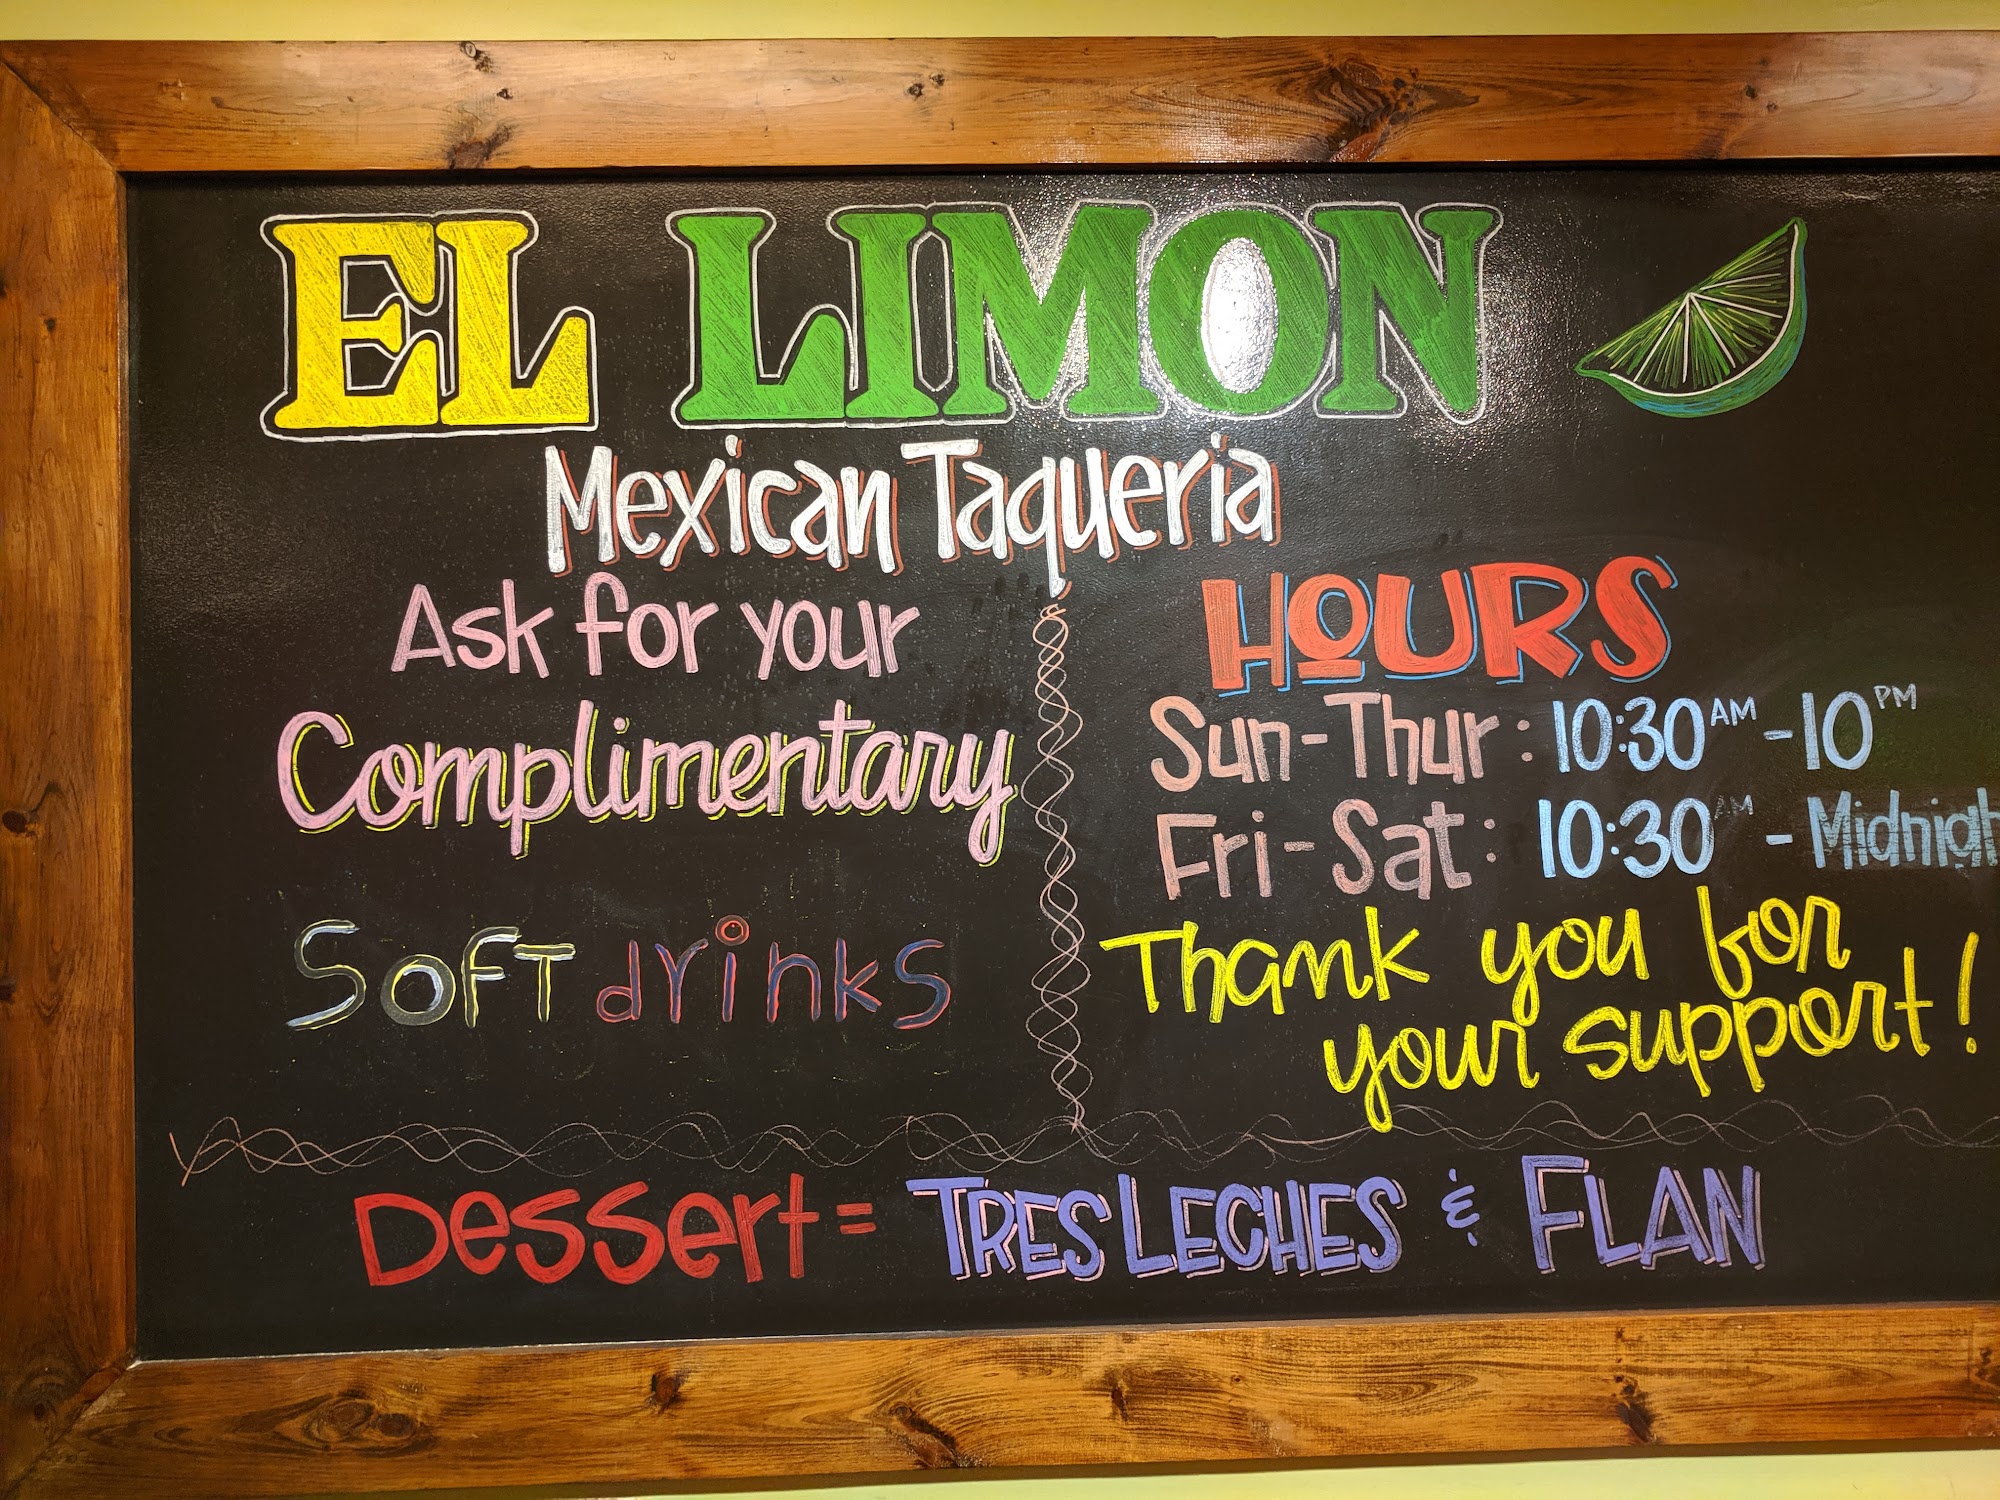 EL LIMON
Mexican Taqueria
Ask for your
Complimentary
Soft drinks
HOURS
Sun-Thur: 10:30AM -10PM
Fri-Sat: 10:30AM - Midnigh
Thank you for
your support!
Dessert= TRES LECHES & FLAN